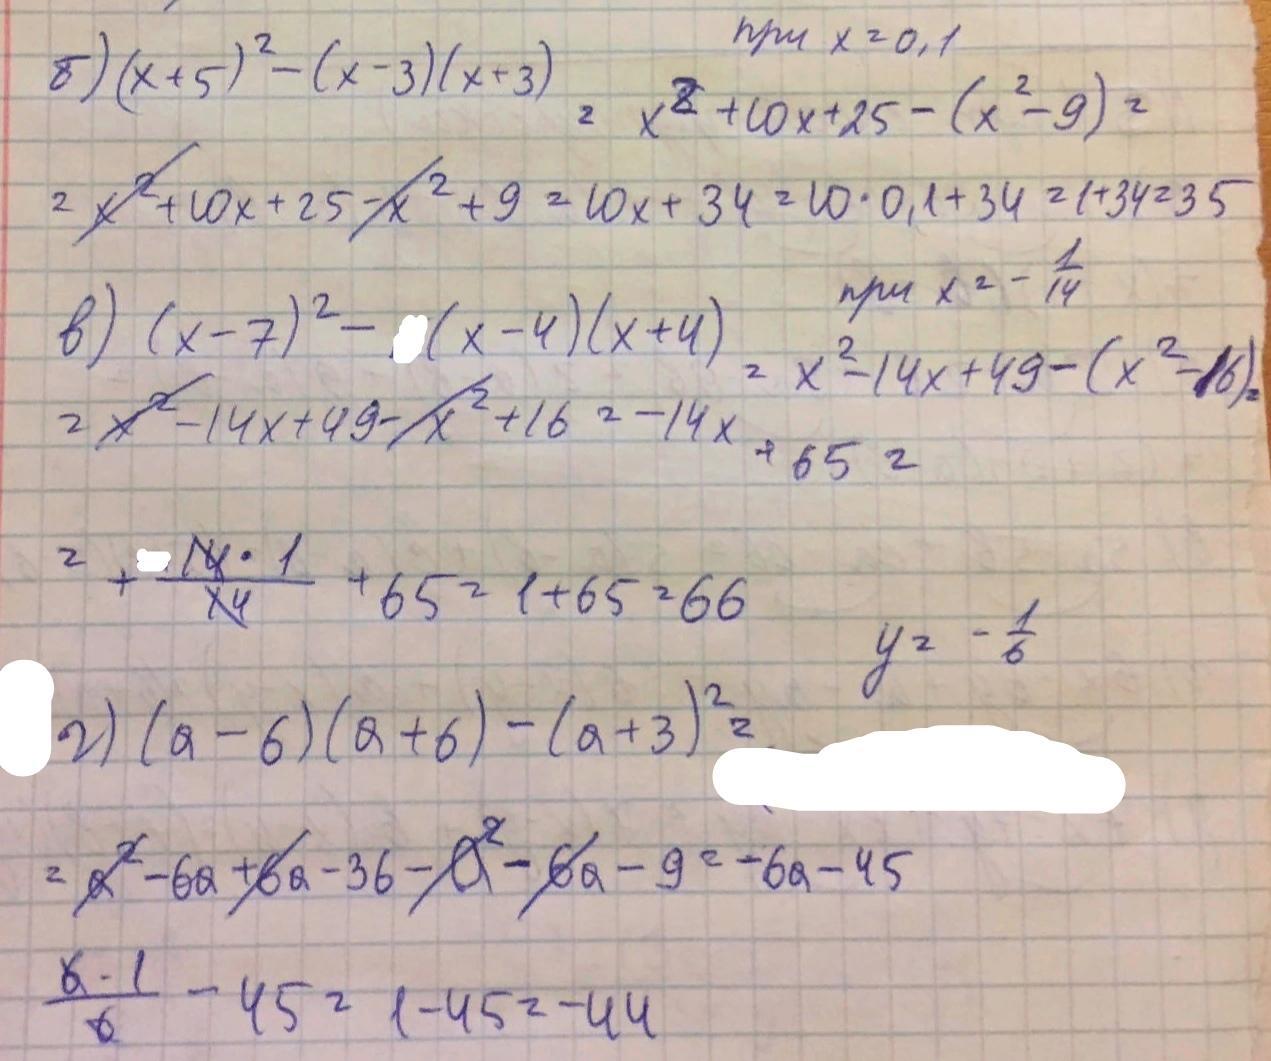 при x = 0,1
б) (x+5)² - (x-3)(x+3) = x² + 10x + 25 - (x² - 9) =
= x² + 10x + 25 - x² + 9 = 10x + 34 = 10 · 0,1 + 34 = 1 + 34 = 35
при x = - 1/14
в) (x-7)² - (x-4)(x+4) = x² - 14x + 49 - (x² - 16) =
= x² - 14x + 49 - x² + 16 = -14x + 65 =
= + 14 · 1/14 + 65 = 1 + 65 = 66
y = - 1/6
г) (a-6)(a+6) - (a+3)² =
= a² - 6a + 6a - 36 - a² - 6a - 9 = -6a - 45
6 · 1/6 - 45 = 1 - 45 = -44